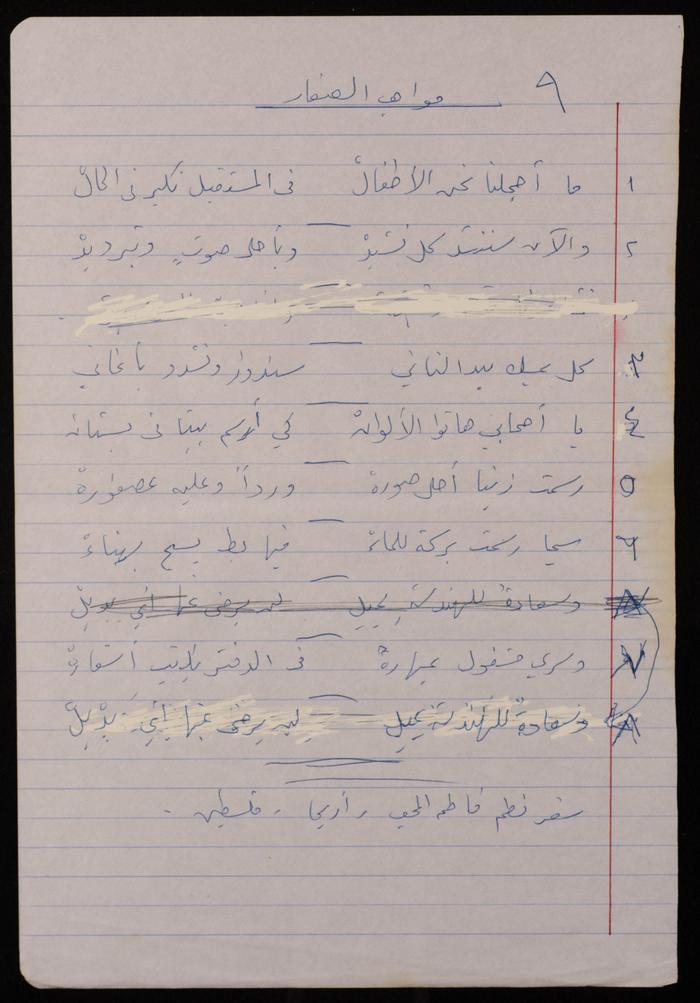 ٩ مواهب الصغار
١ ما أجملنا نحن الأطفالْ في المستقبل نكبر في الحالْ
٢ والآن سننشد كل نشيدْ وبأحلى صوتٍ وتبرديدْ
٣ كل يمسك بيد الثاني سندور ونشدو بأغاني
٤ يا أصحابي هاتوا الألوانْ كي أرسم بيتا في بستان
٥ رسمت زينا أحلى صورةْ ورداً وعليه عصفورةْ
٦ سما رسمت بركة للماءْ فيها بط يسبح بهناءْ
وسعادة للهندسة يميل ليس يرضى عنها أي بديلْ
٧ وسري مشغول بمهارةْ في الدفتر يكتب أشعارهْ
٨ وسعادةٌ للهندسة يميل ليس يرضى عنها أي بديلْ
شعر نظم فاطمة أريحا - فلسطين -